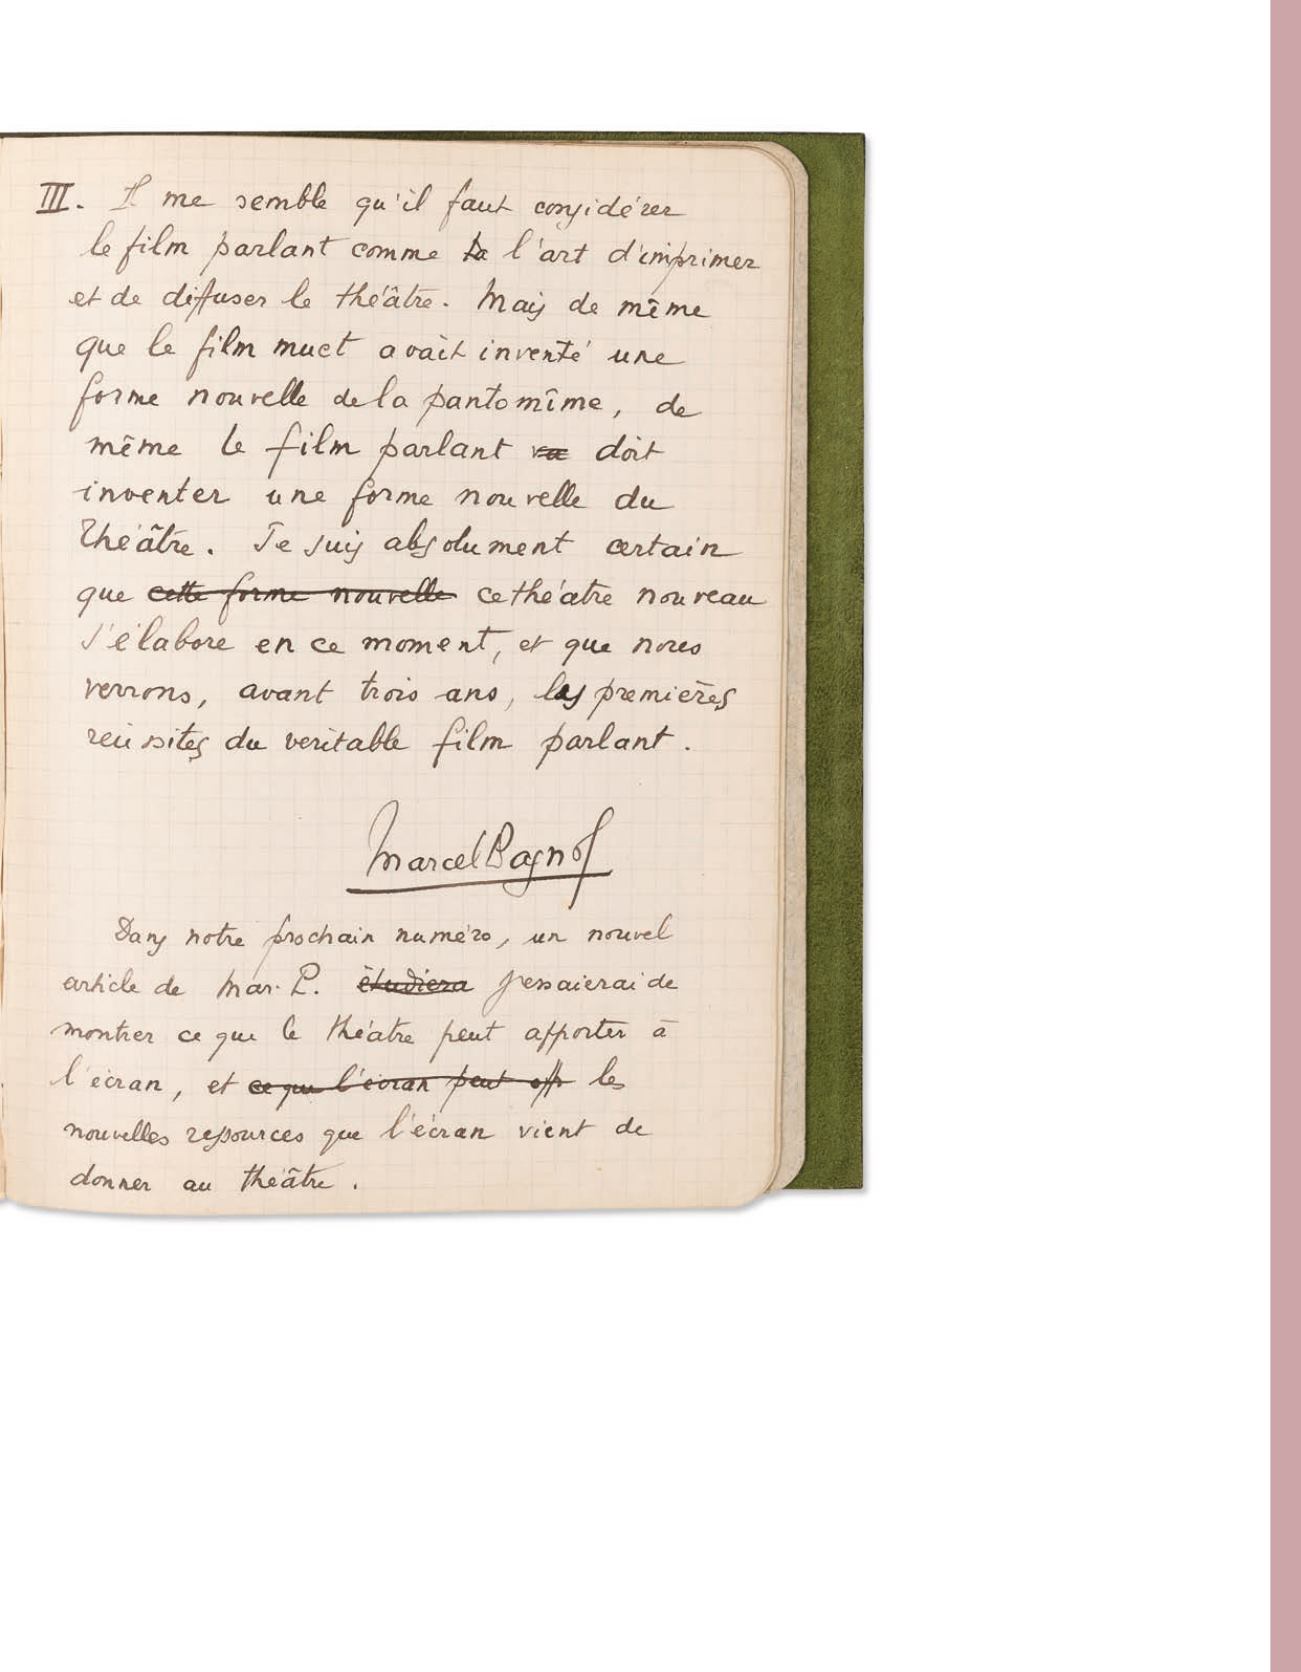 III. Il me semble qu'il faut considérer
le film parlant comme la l'art d'imprimer
et de diffuser le théâtre. Mais de même
que le film muet avait inventé une
forme nouvelle de la pantomîme, de
même le film parlant va doit
inventer une forme nouvelle du
Théâtre. Je suis absolument certain
que cette forme nouvelle ce théatre nouveau
s'élabore en ce moment, et que nous
verrons, avant trois ans, les premières
réussites du veritable film parlant.
Marcel Pagnol
Dans notre prochain numéro, un nouvel
article de Mar. P. étudiera j'essaierai de
montrer ce que le théatre peut apporter à
l'écran, et ce que l'écran peut app les
nouvelles ressources que l'écran vient de
donner au théâtre.